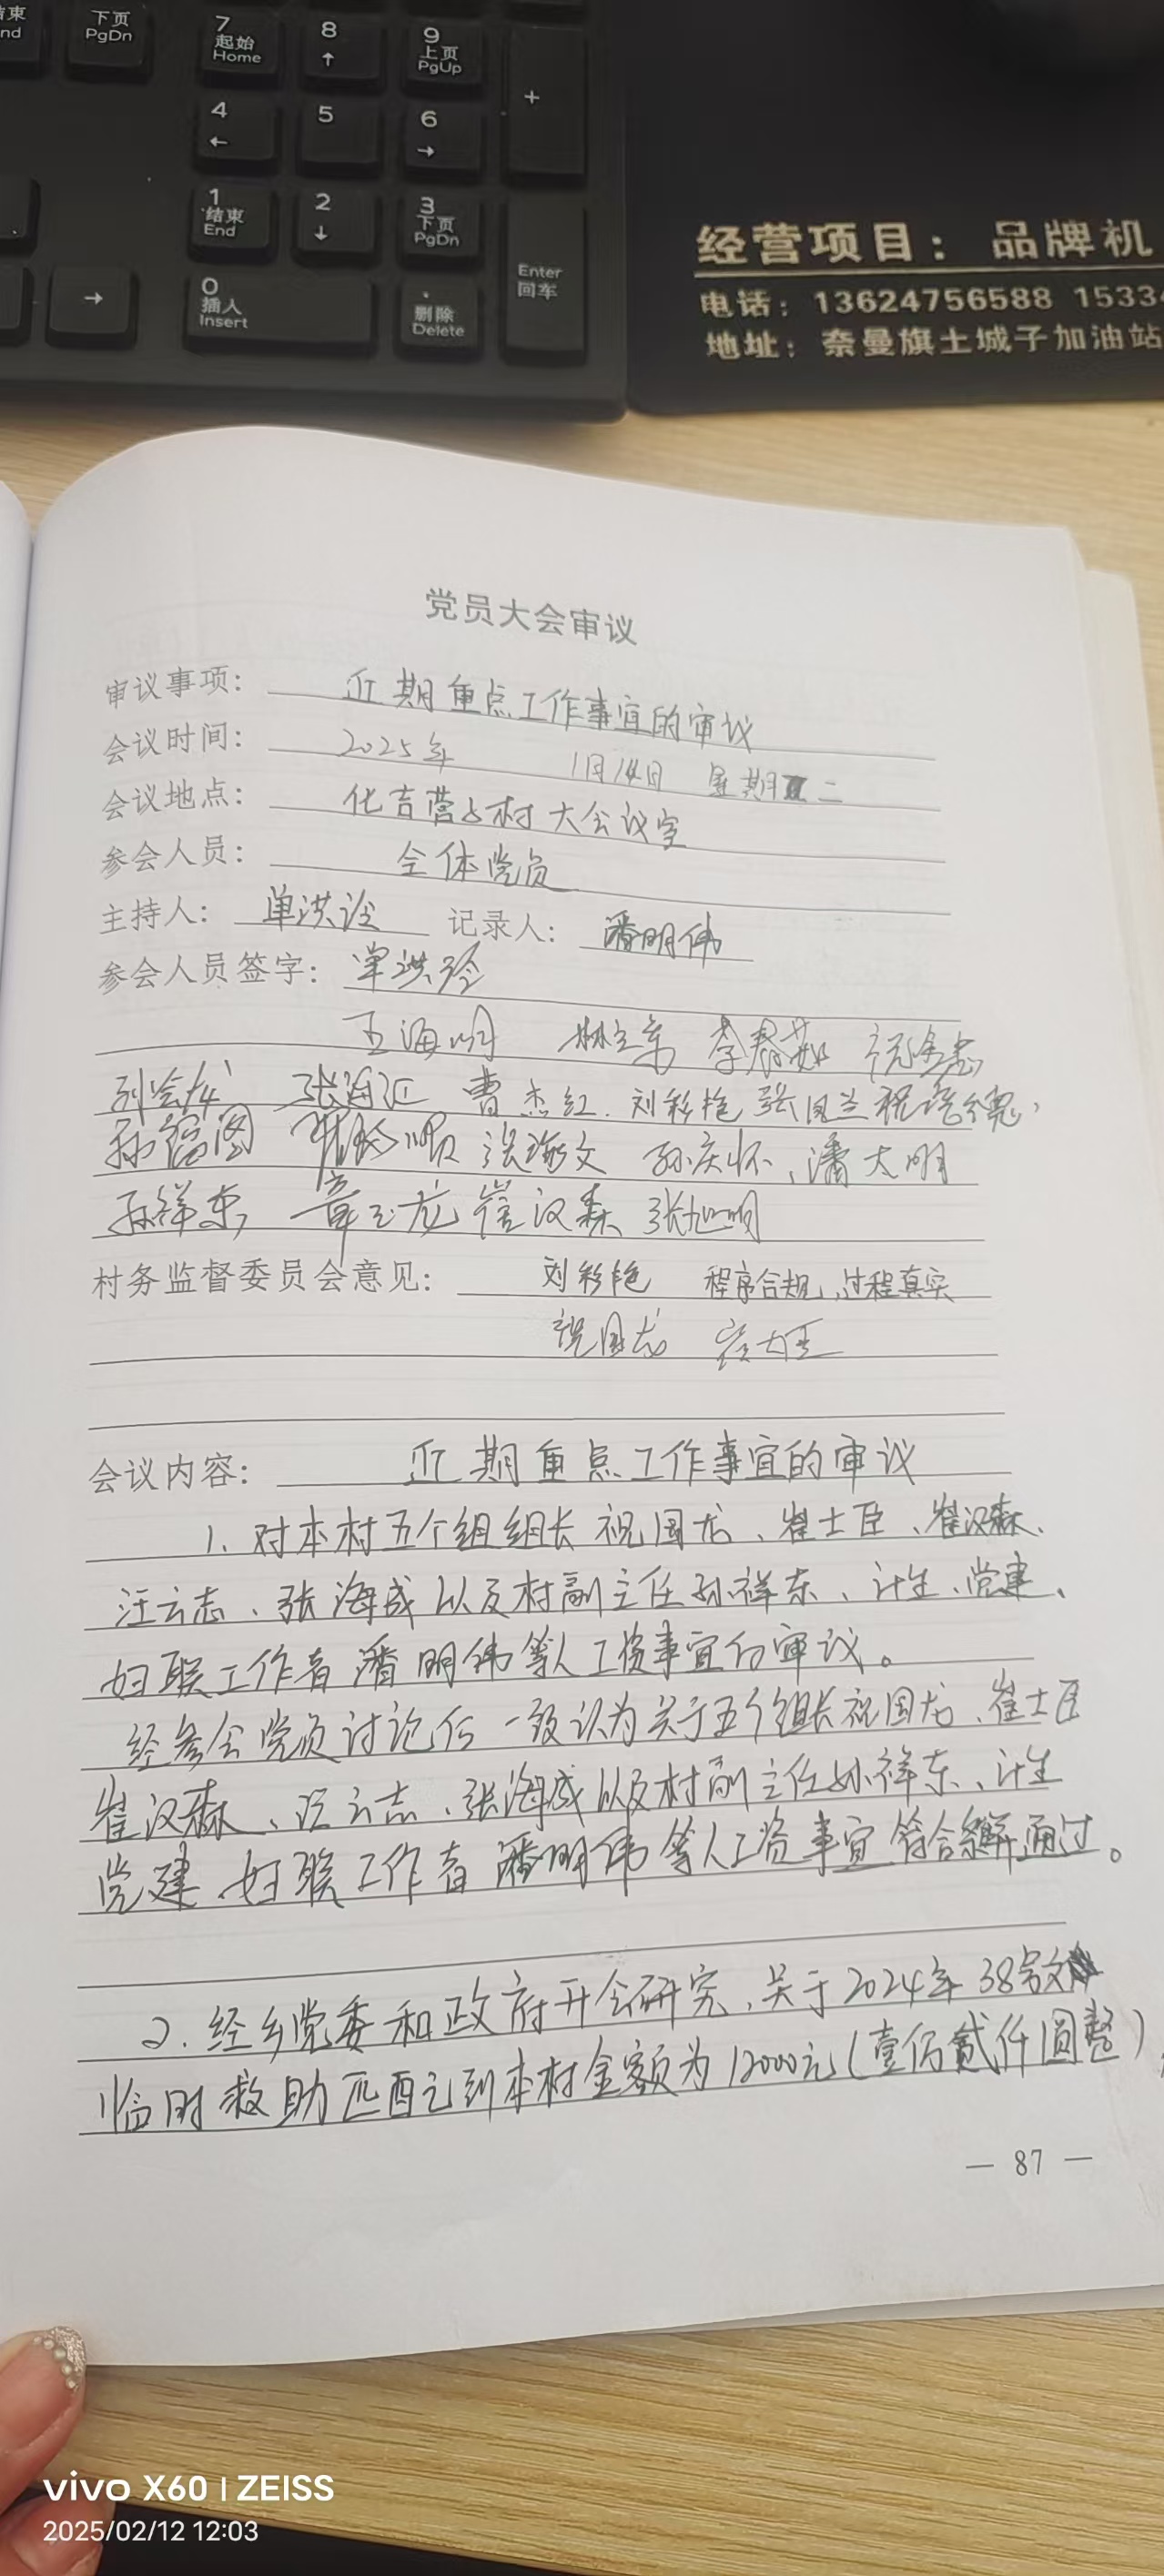 结束 下页 7 8 9
nd PgDn 起始 ↑ 上页 +
Home PgUp
4 5 6
← →
1 2 3
结束 ↓ 下页 Enter
End PgDn 回车
→ 0 .
插入 删除
Insert Delete
经营项目： 品牌机
电话：13624756588 1533
地址：奈曼旗土城子加油站
党员大会审议
审议事项： 近期重点工作事宜的审议
会议时间： 2025年 1月14日 星期二
会议地点： 化吉营子村大会议室
参会人员： 全体党员
主持人： 单洪 记录人： 潘明伟
参会人员签字： 单洪玲
王海明
张海江 曹杰红 刘彩艳 张国兰
孙庆怀、潘大明
孙祥东 章玉龙 崔汉森 张旭明
村务监督委员会意见： 刘彩艳 程序合规，过程真实
祝国龙
会议内容： 近期重点工作事宜的审议
1、对本村五个组组长祝国龙、崔士臣、崔汉森、
汪云志、张海成以及村副主任孙祥东、计生、党建、
妇联工作者潘明伟等人工资事宜的审议。
经参会党员讨论后一致认为关于五个组长祝国龙、崔士臣
崔汉森、汪云志、张海成以及村副主任孙祥东、计生
党建、妇联工作者潘明伟等人工资事宜符合 通过。
2.经乡党委和政府开会研究，关于2024年38号文
临时救助匹配 到本村金额为12000元（壹佰贰仟圆整）
— 87 —
vivo X60 | ZEISS
2025/02/12 12:03